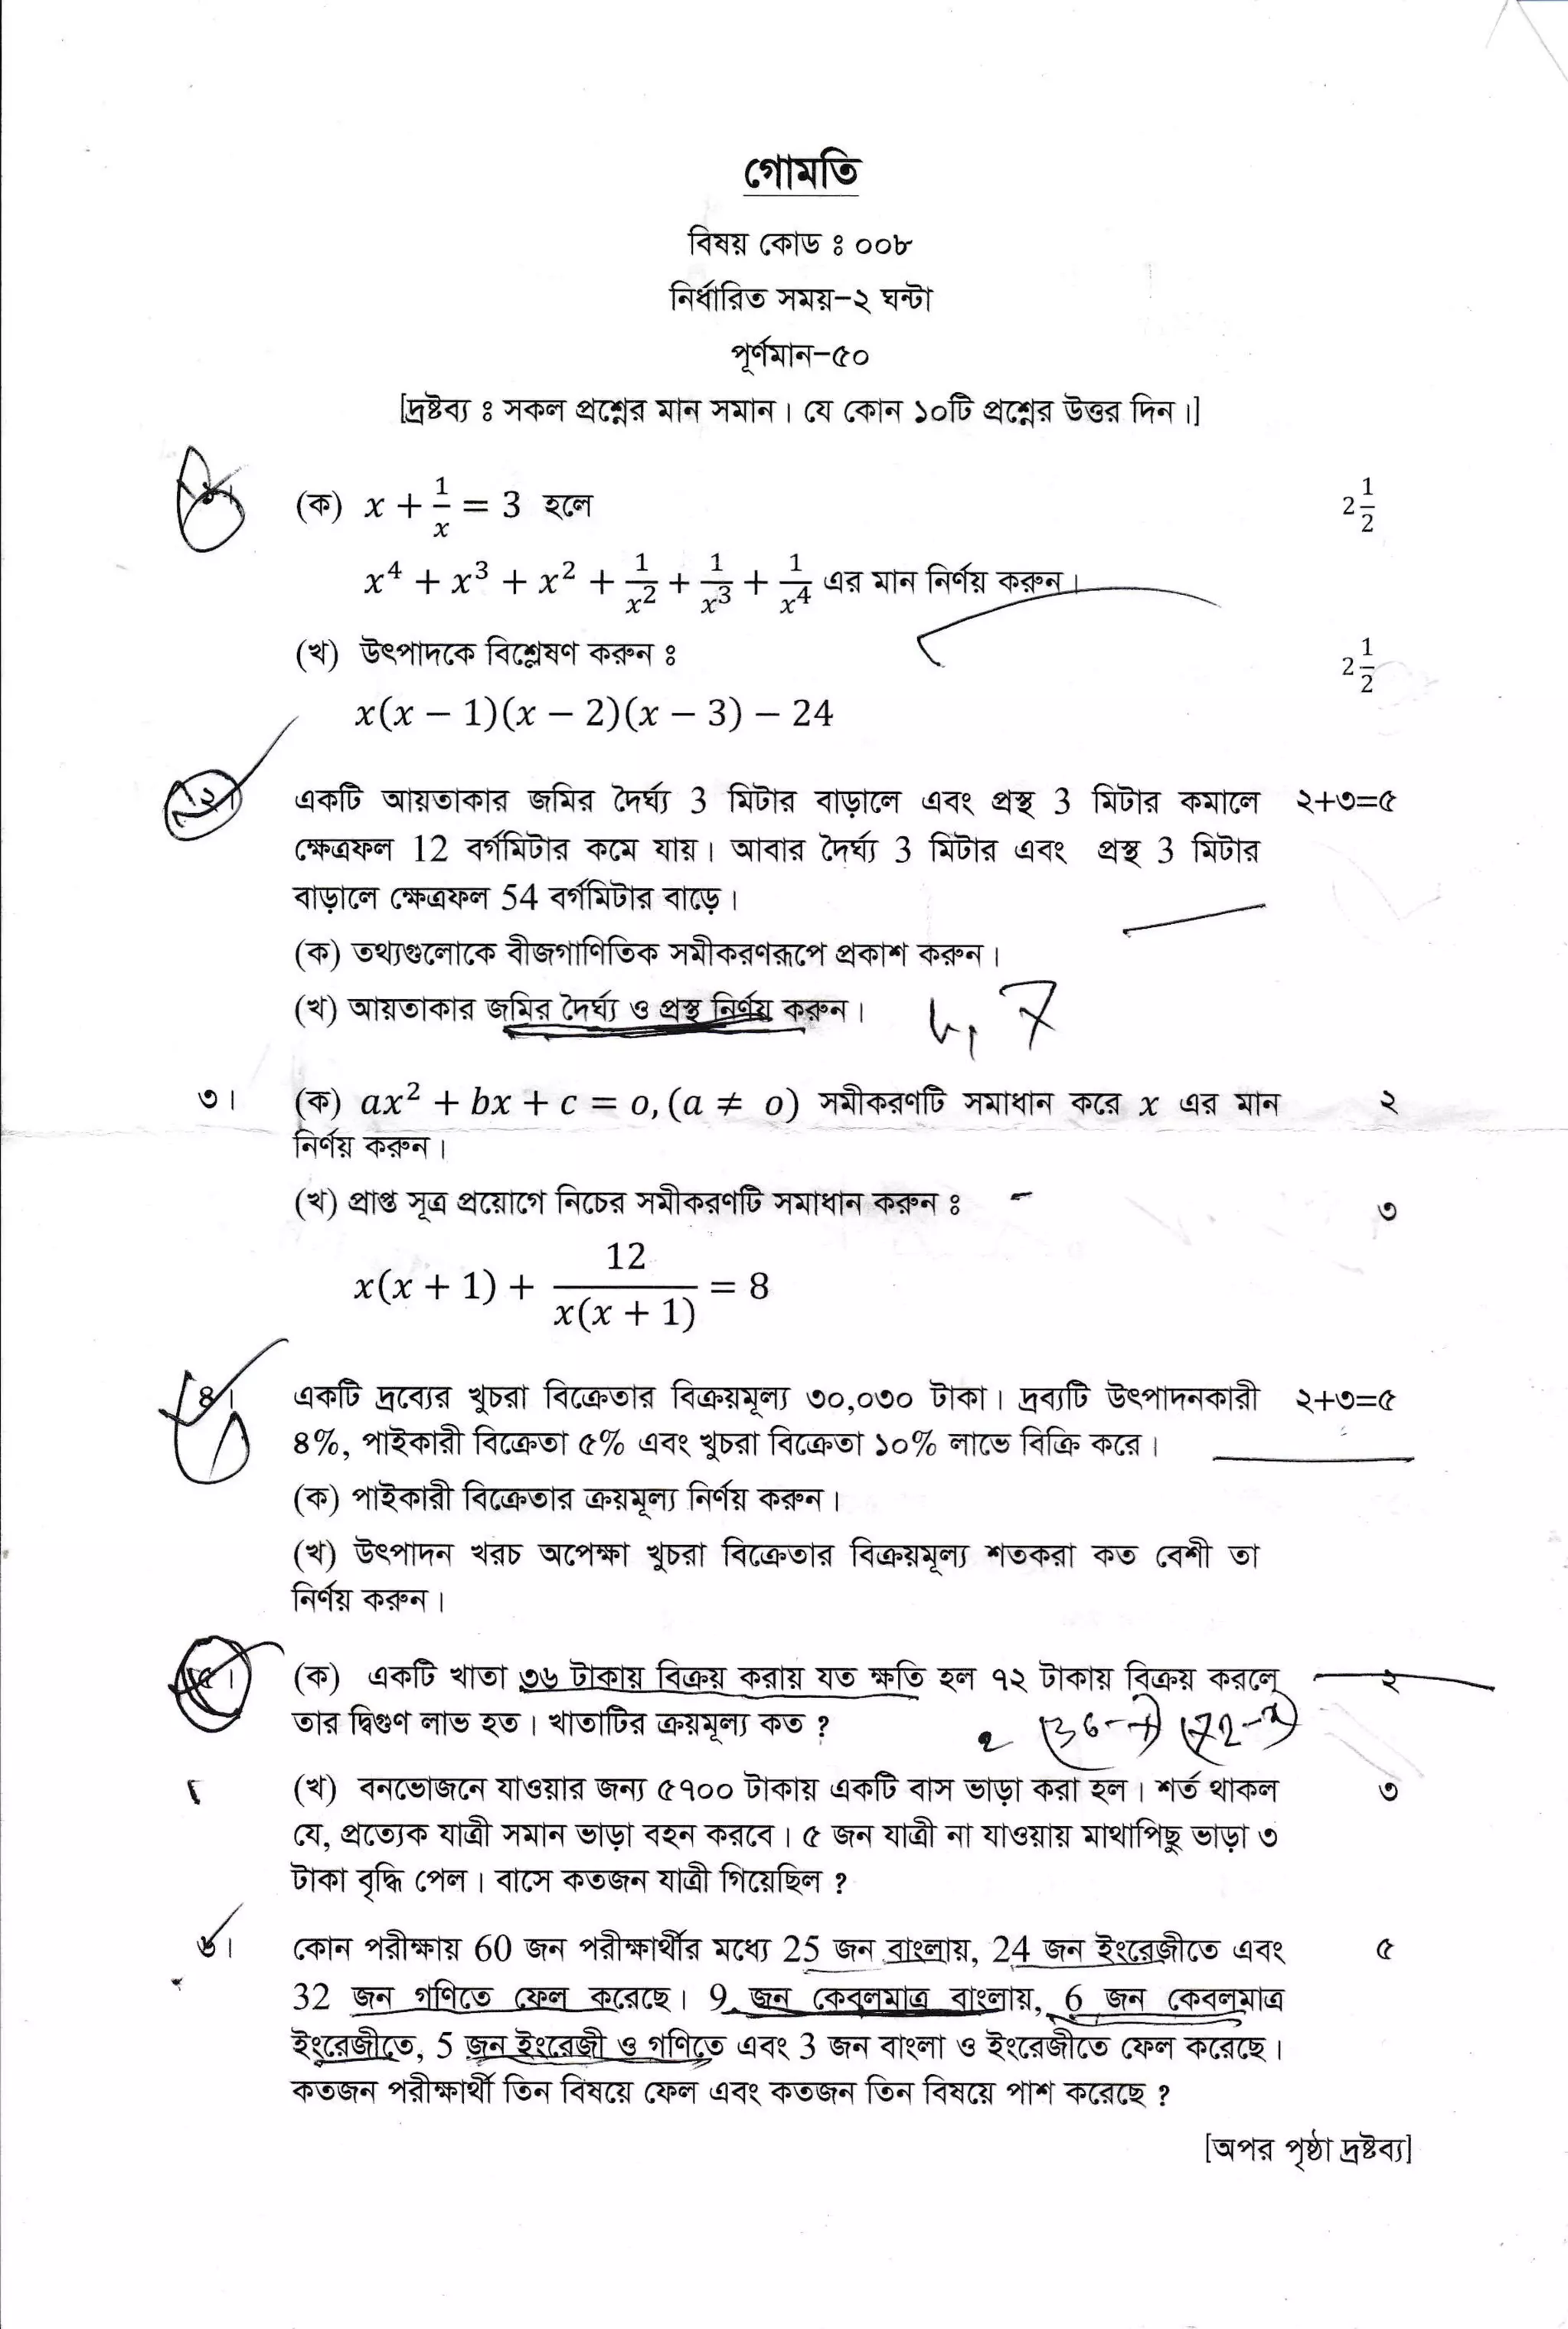 গোমতি
বিষয় কোড ঃ ০০৮
নির্ধারিত সময়-২ ঘন্টা
পূর্ণমান-৫০
[দ্রষ্টব্য ঃ সকল প্রশ্নের মান সমান। যে কোন ১০টি প্রশ্নের উত্তর দিন।]
(ক) x + 1/x = 3 হলে 2 1/2
x⁴ + x³ + x² + 1/x² + 1/x³ + 1/x⁴ এর মান নির্ণয় করুন।
(খ) উৎপাদকে বিশ্লেষণ করুন ঃ 2 1/2
x(x − 1)(x − 2)(x − 3) − 24
২। একটি আয়তাকার জমির দৈর্ঘ্য 3 মিটার বাড়ালে এবং প্রস্থ 3 মিটার কমালে ২+৩=৫
ক্ষেত্রফল 12 বর্গমিটার কমে যায়। আবার দৈর্ঘ্য 3 মিটার এবং প্রস্থ 3 মিটার
বাড়ালে ক্ষেত্রফল 54 বর্গমিটার বাড়ে।
(ক) তথ্যগুলোকে বীজগাণিতিক সমীকরণরূপে প্রকাশ করুন।
(খ) আয়তাকার জমির দৈর্ঘ্য ও প্রস্থ নির্ণয় করুন। 7
৩। (ক) ax² + bx + c = o, (a ≠ o) সমীকরণটি সমাধান করে x এর মান ২
নির্ণয় করুন।
(খ) প্রাপ্ত সূত্র প্রয়োগে নিচের সমীকরণটি সমাধান করুন ঃ ৩
x(x + 1) + 12/x(x + 1) = 8
৪। একটি দ্রব্যের খুচরা বিক্রেতার বিক্রয়মূল্য ৩০,০৩০ টাকা। দ্রব্যটি উৎপাদনকারী ২+৩=৫
৪%, পাইকারী বিক্রেতা ৫% এবং খুচরা বিক্রেতা ১০% লাভে বিক্রি করে।
(ক) পাইকারী বিক্রেতার ক্রয়মূল্য নির্ণয় করুন।
(খ) উৎপাদন খরচ অপেক্ষা খুচরা বিক্রেতার বিক্রয়মূল্য শতকরা কত বেশী তা
নির্ণয় করুন।
৫। (ক) একটি খাতা ৩৬ টাকায় বিক্রয় করায় যত ক্ষতি হল ৭২ টাকায় বিক্রয় করলে ২
তার দ্বিগুণ লাভ হত। খাতাটির ক্রয়মূল্য কত ? 2 (36-x) (72-x)
(খ) বনভোজনে যাওয়ার জন্য ৫৭০০ টাকায় একটি বাস ভাড়া করা হল। শর্ত থাকল ৩
যে, প্রত্যেক যাত্রী সমান ভাড়া বহন করবে। ৫ জন যাত্রী না যাওয়ায় মাথাপিছু ভাড়া ৩
টাকা বৃদ্ধি পেল। বাসে কতজন যাত্রী গিয়েছিল ?
৬। কোন পরীক্ষায় 60 জন পরীক্ষার্থীর মধ্যে 25 জন বাংলায়, 24 জন ইংরেজীতে এবং ৫
32 জন গণিতে ফেল করেছে। 9 জন কেবলমাত্র বাংলায়, 6 জন কেবলমাত্র
ইংরেজীতে, 5 জন ইংরেজী ও গণিতে এবং 3 জন বাংলা ও ইংরেজীতে ফেল করেছে।
কতজন পরীক্ষার্থী তিন বিষয়ে ফেল এবং কতজন তিন বিষয়ে পাশ করেছে ?
[অপর পৃষ্ঠা দ্রষ্টব্য]